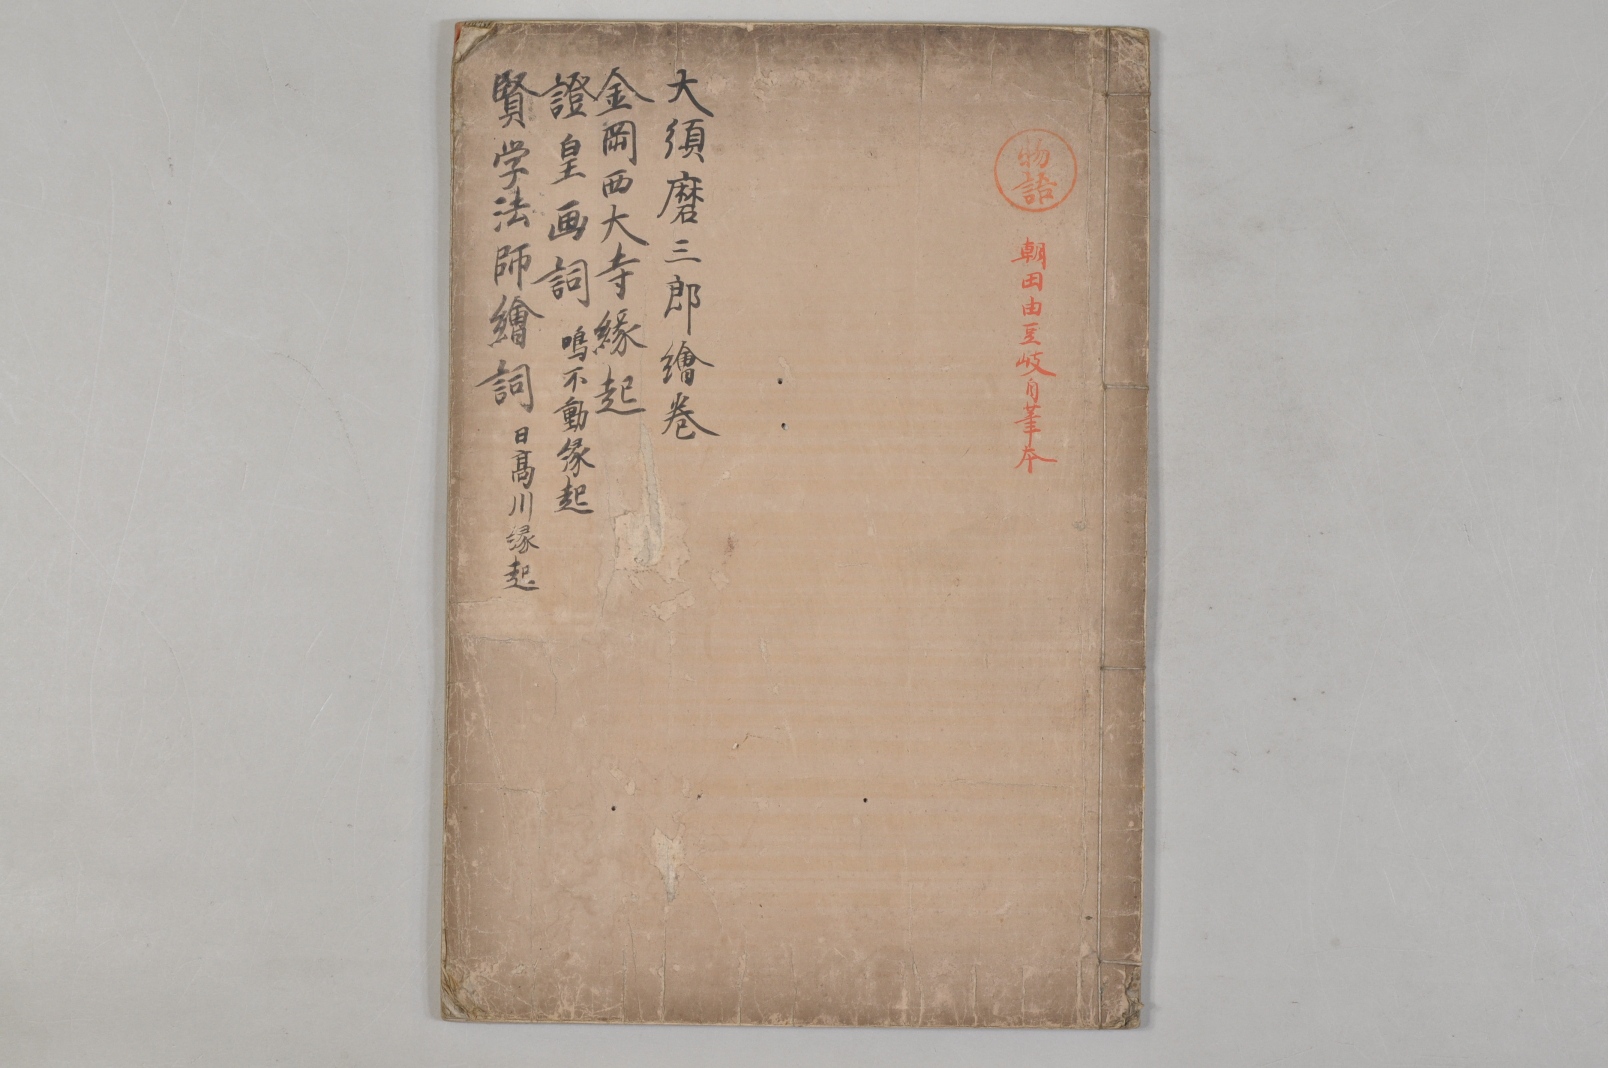 物語
朝田由豆岐自筆本
大須磨三郎繪巻
金岡西大寺縁起
證皇画詞 鳴不動縁起
賢学法師繪詞 日高川縁起